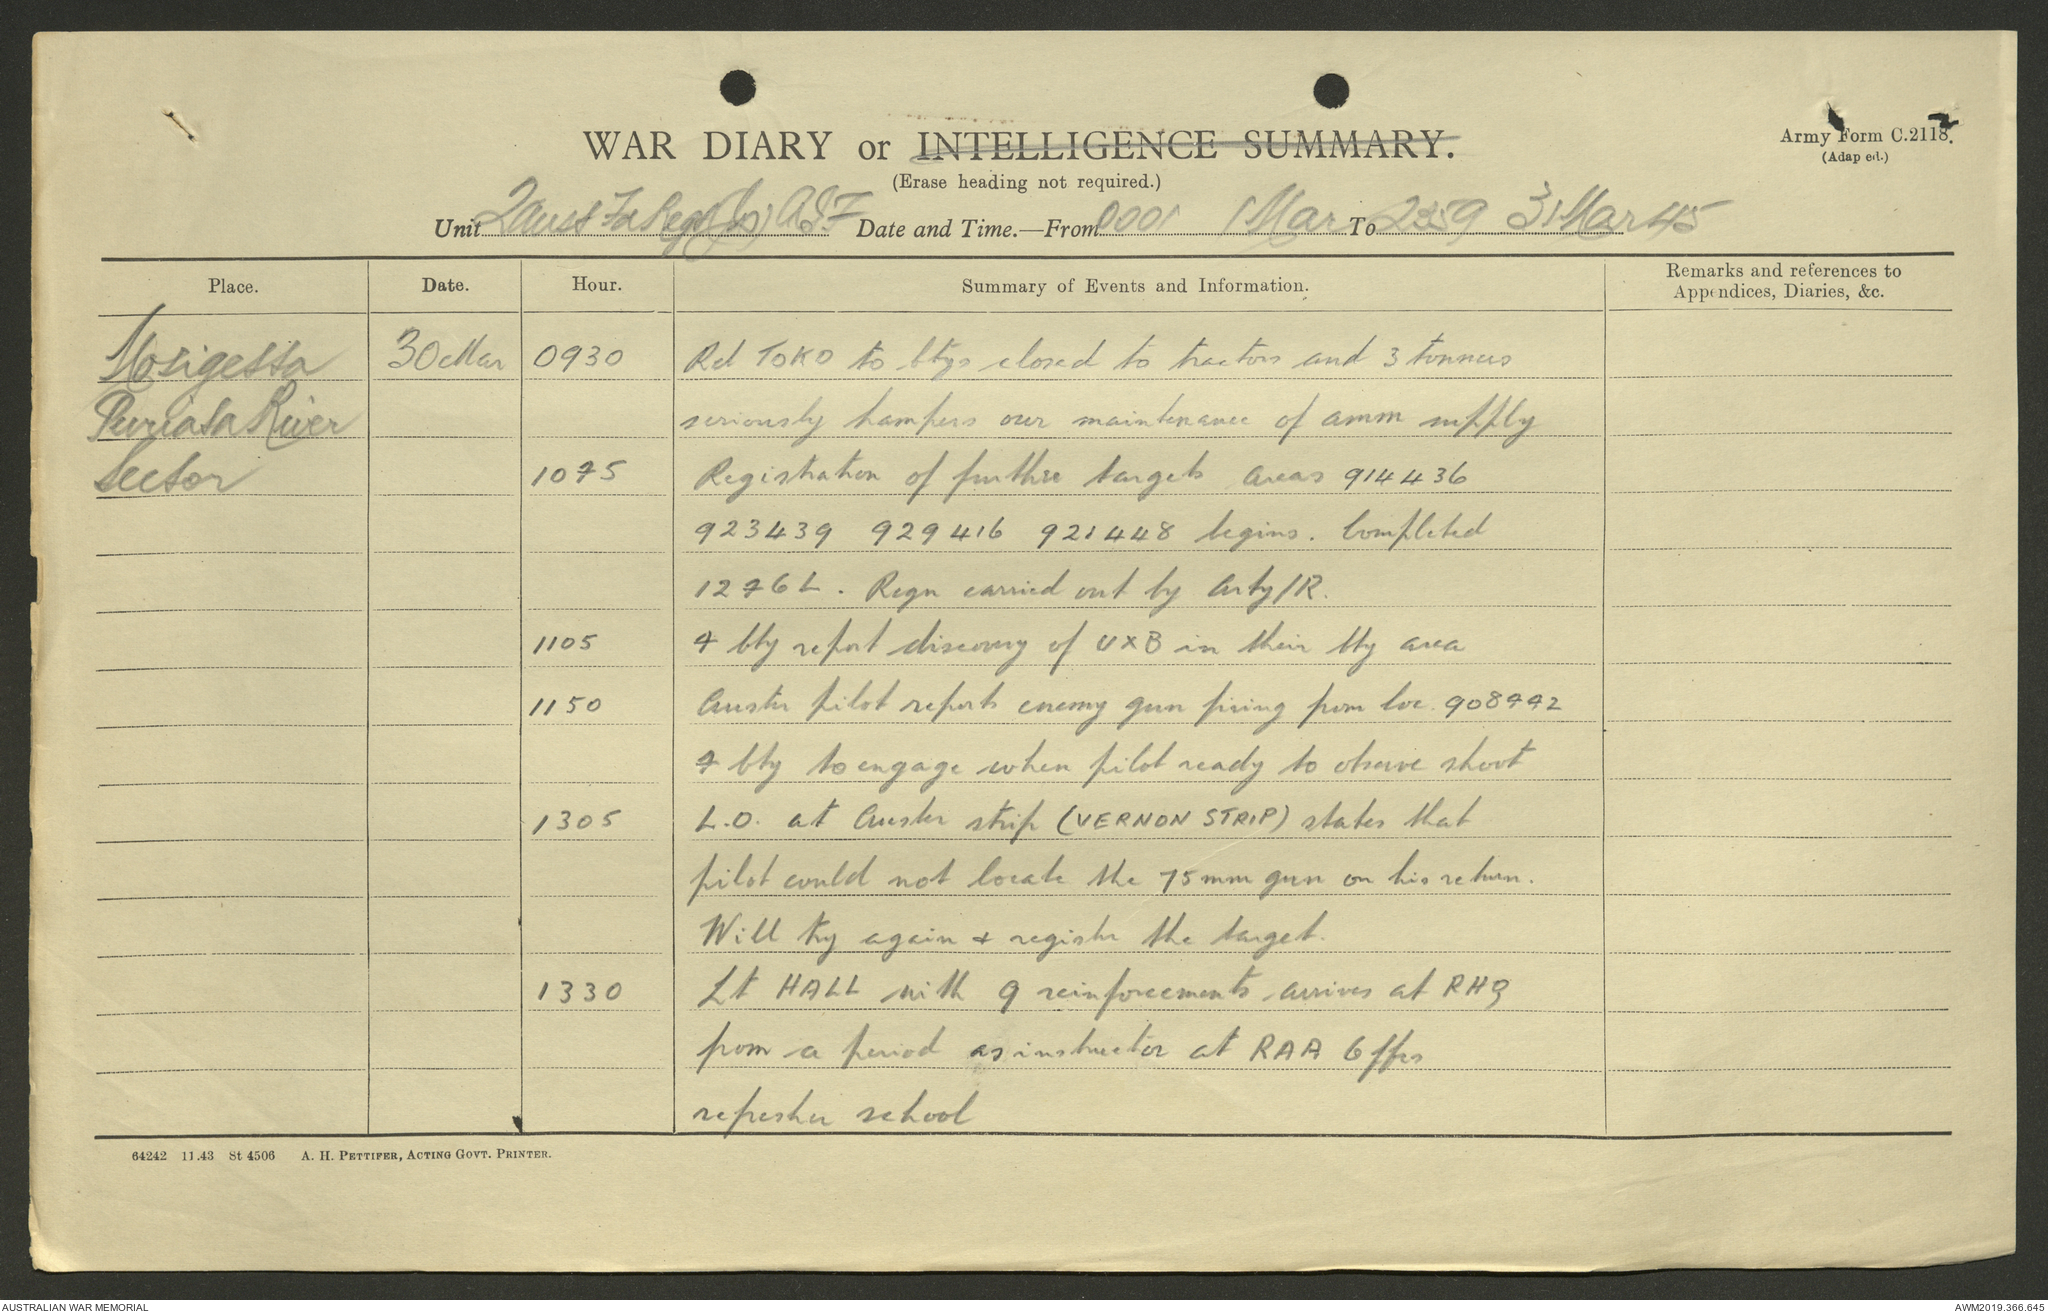 WAR DIARY or INTELLIGENCE SUMMARY.
(Erase heading not required.)
Army Form C.2118.
(Adap ed.)
2
Unit 2 Aust Fd Regt (Jx) AIF Date and Time.—From 0001 1 Mar To 2359 31 Mar 45
Place. Date. Hour. Summary of Events and Information. Remarks and references to Appendices, Diaries, &c.
Mosigetta 30 Mar 0930 Rd TOKO to btys closed to tractors and 3 tonners
Puriata River seriously hampers our maintenance of amm supply
Sector 1045 Registration of further targets areas 914436
923439 929416 921448 begins. Completed
1246L. Regn carried out by Arty/R.
1105 4 bty report discovery of UXB in their bty area
1150 Auster pilot reports enemy gun firing from loc. 908442
4 bty to engage when pilot ready to observe shoot
1305 L.O. at Auster strip (VERNON STRIP) states that
pilot could not locate the 75mm gun on his return.
Will try again & register the target.
1330 Lt HALL with 9 reinforcements arrives at RHQ
from a period as instructor at RAA Offrs
refresher school
64242 11.43 St 4506 A. H. PETTIFER, ACTING GOVT. PRINTER.
AUSTRALIAN WAR MEMORIAL
AWM2019.366.645